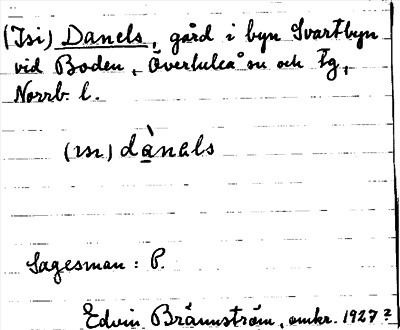 (Isi) Danels, gård i byn Svartbyn
vid Boden, Överluleå sn och Tg,
Norrb. l.
(ısı) dànals
Sagesman: P.
Edvin Brännström, omkr. 1927?